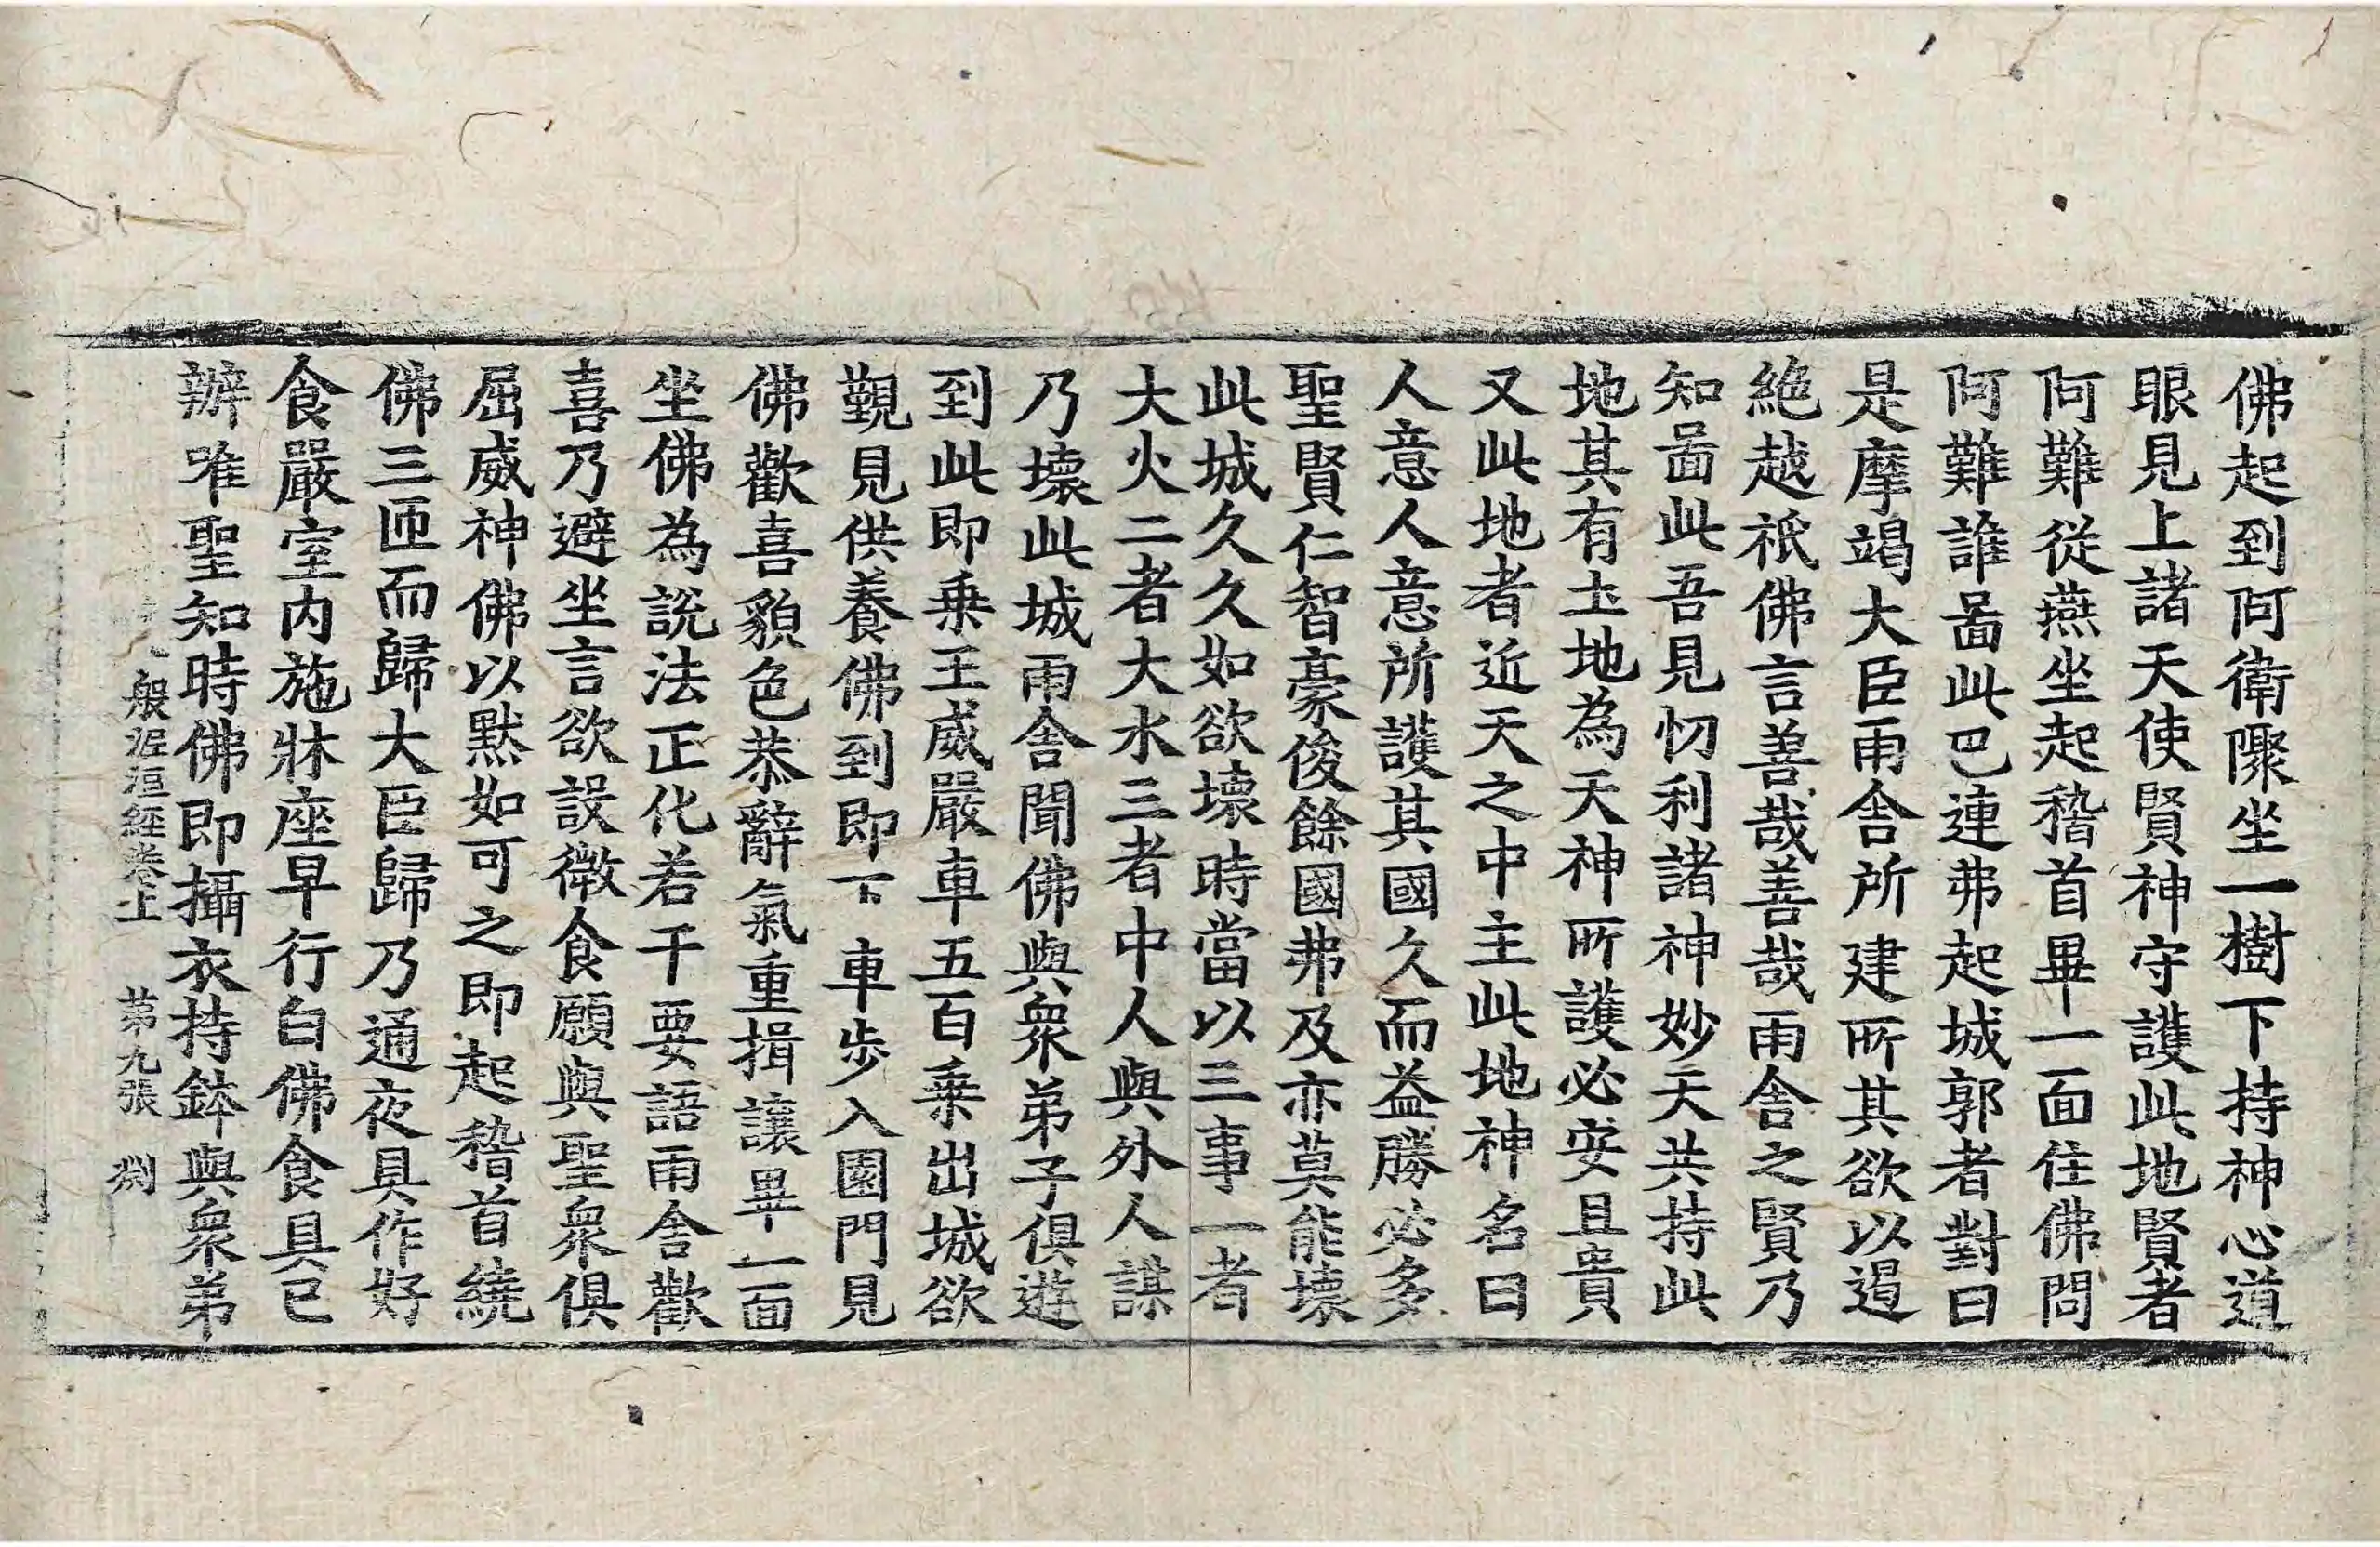 佛起到阿衛隟坐一樹下持神心道
眼見上諸天使賢神守護此地賢者
阿難從燕坐起稽首畢一面住佛問
阿難誰啚此巴連弗起城郭者對曰
是摩竭大臣雨舍所建所其欲以遏
絶越祇佛言善哉善哉雨舍之賢乃
知啚此吾見忉利諸神妙天共持此
地其有土地為天神所護必安且貴
又此地者近天之中主此地神名曰
人意人意所護其國久而益勝必多
聖賢仁智豪俊餘國弗及亦莫能壞
此城久久如欲壞時當以三事一者
大火二者大水三者中人與外人謀
乃壞此城雨舍聞佛與衆弟子俱遊
到此即乗王威嚴車五百乗出城欲
覲見供養佛到即下車步入園門見
佛歡喜貌色恭辭氣重揖讓畢一面
坐佛為說法正化若干要語雨舍歡
喜乃避坐言欲設微食願與聖衆俱
屈威神佛以黙如可之即起稽首繞
佛三匝而歸大臣歸乃通夜具作好
食嚴室内施牀座早行白佛食具已
辦唯聖知時佛即攝衣持鉢與衆弟
般泥洹經卷上 第九張